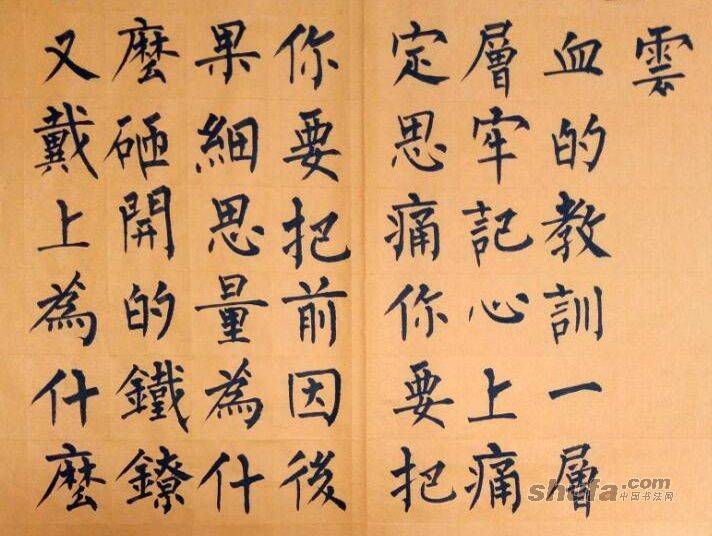 雲
血的教訓一層
層牢記心上痛
定思痛你要把
你要把前因後
果細思量為什
麼砸開的鐵鐐
又戴上為什麼
shufa.com
中国书法网